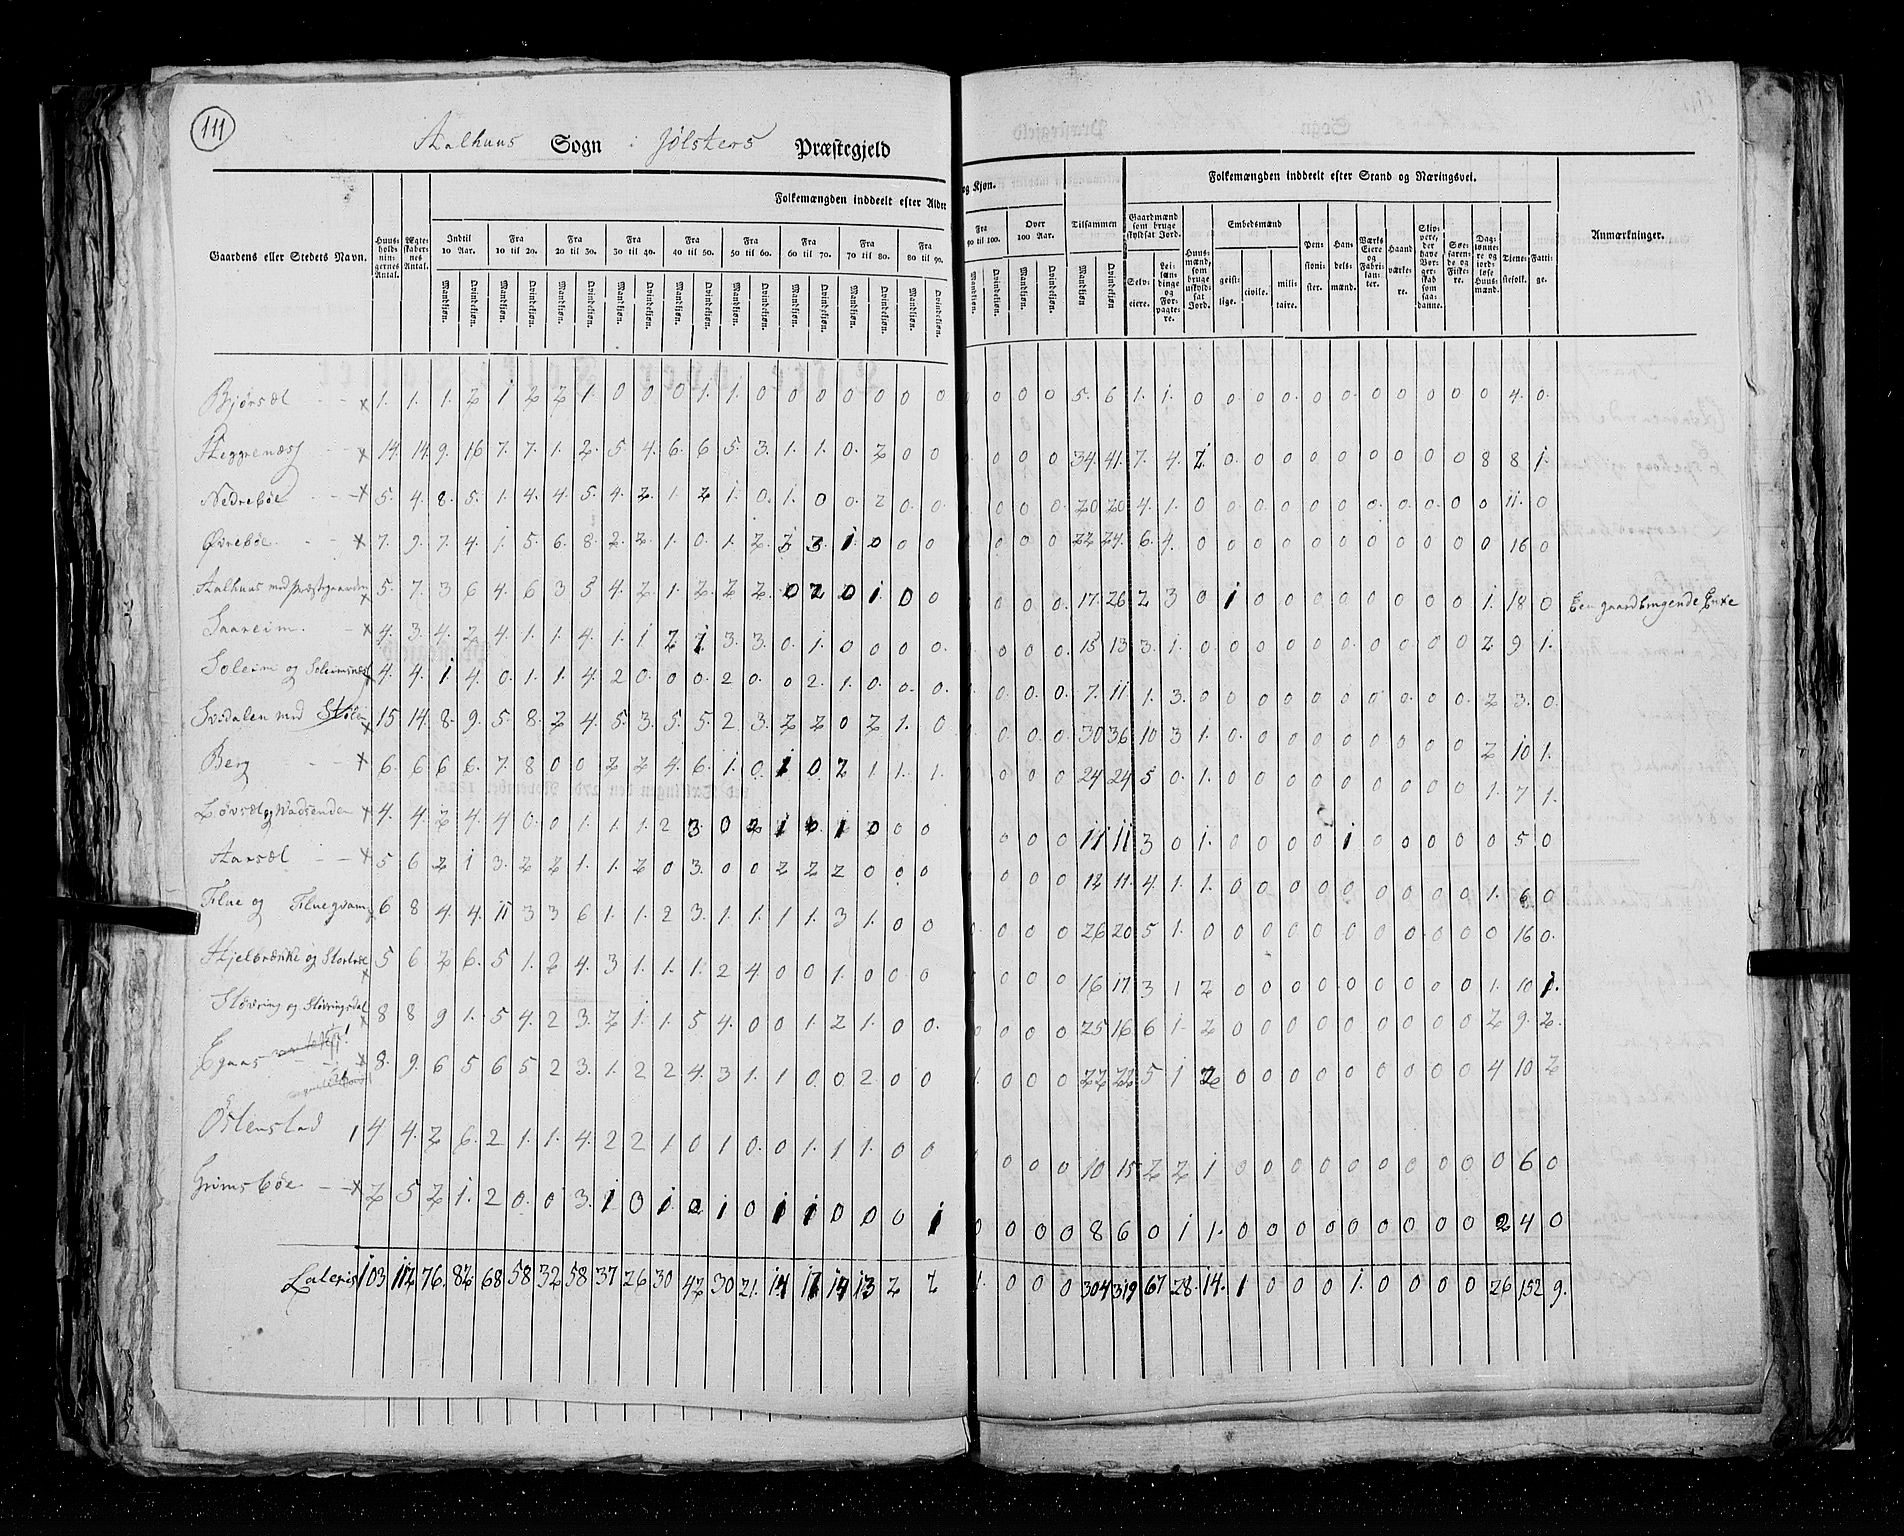 111
Aalhuus Sogn i Jølsters Præstegjeld
Folkemængden inddeelt efter Alder og Kjøn.
Folkemængden inddeelt efter Stand og Næringsvei.
Gaardens eller Stedets Navn.
Huusholdningernes Antal.
Ægteskabernes Antal.
Indtil 10 Aar.
Fra 10 til 20.
Fra 20 til 30.
Fra 30 til 40.
Fra 40 til 50.
Fra 50 til 60.
Fra 60 til 70.
Fra 70 til 80.
Fra 80 til 90.
Fra 90 til 100.
Over 100 Aar.
Tilsammen
Mandkjøn. Qvindekjøn.
Gaardmænd som bruge skyldsat Jord.
Selveiere.
Leilændinge og Forpagtere.
Huusmænd, som bruge uskyldsat Jord.
Embedsmænd
geistlige.
civile.
militaire.
Pensionister.
Handelsmænd.
Værks Eiere og Fabrikanter.
Haandværkere.
Søefarende og Fiskere.
Tjenestefolk.
Fattige.
Anmærkninger.
Bjørsæl x 1. 1. 1. 2 1 2 2 1. 0 0 0 1. 1. 0 0 0 0 0 0 0 0 0 0 5. 6 1. 1. 0 0 0 0 0 0 0 0 0 0 0 4. 0
Skeggenæss x 14. 14. 9. 16 7. 7. 1. 2. 5 4. 6. 6 5. 3. 1. 1. 0. 2 0 0 0 0 0 34. 41. 7. 4. 2 0 0 0 0 0 0 0 0 0 8 8 1.
Nedrebøe x 5. 4. 8. 5. 1. 4. 4. 5. 4. 2. 1. 2 1. 0. 1. 0 0 2 0 0 0 0 0 20 20 4. 1. 0 0 0 0 0 0 0 0 0 0 0 11. 0
Øvrebøe x 7. 9. 7. 4. 1. 5. 6. 8. 2. 2. 1. 0. 1. 2. 3 3. 1. 0 0 0 0 0 0 22 24. 6. 4. 0 0 0 0 0 0 0 0 0 0 0 16 0
Aalhuus med Præstegaarden x 5. 7. 3 6 4. 6 3 5 4. 2. 1. 2. 2 2. 0 2 0 1. 0 0 0 0 0 17. 26 2 3 0 1 0 0 0 0 0 0 0 0 1. 18 0 Een gaardbrugende Enke
Saareim x 4. 3. 4. 2 4. 1. 1. 4. 1. 1 2 1 3. 3. 0. 1. 0 0 0 0. 0 0 0 15 13 3. 1. 0 0 0 0 0 0 0 0 0 0 2 9 1.
Soleim og Soleimsnæss x 4. 4. 1 4. 0. 1. 1. 4. 2 0. 0 0. 2 0. 0 2. 1. 0. 0. 0. 0 0. 0. 7. 11 1. 3. 0 0 0 0 0 0 0 0 0 0 2 3. 0
x 15 14. 8. 9. 5. 8. 2 4. 5. 3. 5. 5. 2 3. 2 2 0 2 1. 0 0 0 0 30 36 10 3 1. 0. 0 0 0 0 0 0 0 0 2 10 1.
Berg x 6. 6. 6 6. 7. 8 0 0 2 2 4. 6. 1. 0 1 0 2 1 1. 1. 0 0 0 24 24 5 0. 1. 0 0 0 0 0 0 0 0 0 1. 7 1.
Løvsæl og Wadsenden x 4. 4. 2 4. 4 0. 0 1. 1. 1. 2 3. 0 2 1 0 1 0 0 0 0 0 0 11 11 3 0 1. 0 0 0 0 1 0 0 0 0 0 5 0
Aarsæl x 5 6 2 1 3. 2 2 1. 1. 2 0 3. 0 0 2 2 2 0 0 0 0 0 0 12 11. 4. 1. 1. 0 0 0 0 0 0 0 0 0 1. 6 0
Flue og Fluegvam x 6 8 4. 4. 11 3 3 6 1. 1. 2 3. 1. 1. 1 1. 3 1. 0 0 0 0 0 26 20 5 1. 0 0 0 0 0 0 0 0 0 0 0 16 0.
x 5 6 2 6. 5 1. 2 4. 3 1. 1. 1. 2 4. 0 0 1. 0 0 0 0 0 0 16 17 3 1 2 0 0 0 0 0 0 0 0 0 1. 10 1.
Støvring og Støvringsdal x 8 8 9 1. 5 4. 2 3. 2 1. 1. 5 4. 0 0 1. 2 1. 0 0. 0 0 0 25 16 6 1. 2 0 0 0 0 0 0 0 0 0 2 9. 2.
x 8. 9. 6 5 6 5 2 3. 1. 2 2 4. 3 1. 1 0 0. 2 0 0 1. 0 0 0 22 22 5 1 2 0 0 0 0 0 0 0 0 0 4 10 2
Østenstad 4 4. 2 6. 2 1. 1. 4. 2 2 1. 0 1 0. 0 1. 1 1. 0 0 0 0 0 10 15 2 2 1 0 0 0 0 0 0 0 0 0 0 6 0
Grimsbøe x 2 5 2 1. 2 0. 0 3. 1 0 1. 2 1 0 1 1 0 0 0 1 0 0 0 0 8 6 0 1 1. 0 0 0 0 0 0 0 0 0 2 4 0
Lateris 103 112 76. 82 68 58 32 58. 37 26 30 42 30 21. 14 17 14 13 2 2 1. 0 0 0 304 319 67 28. 14. 1 0 0 0 1. 0 0 0 0 26 152 9.